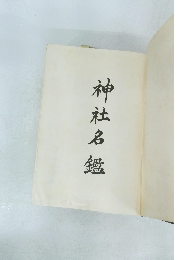 神社名鑑